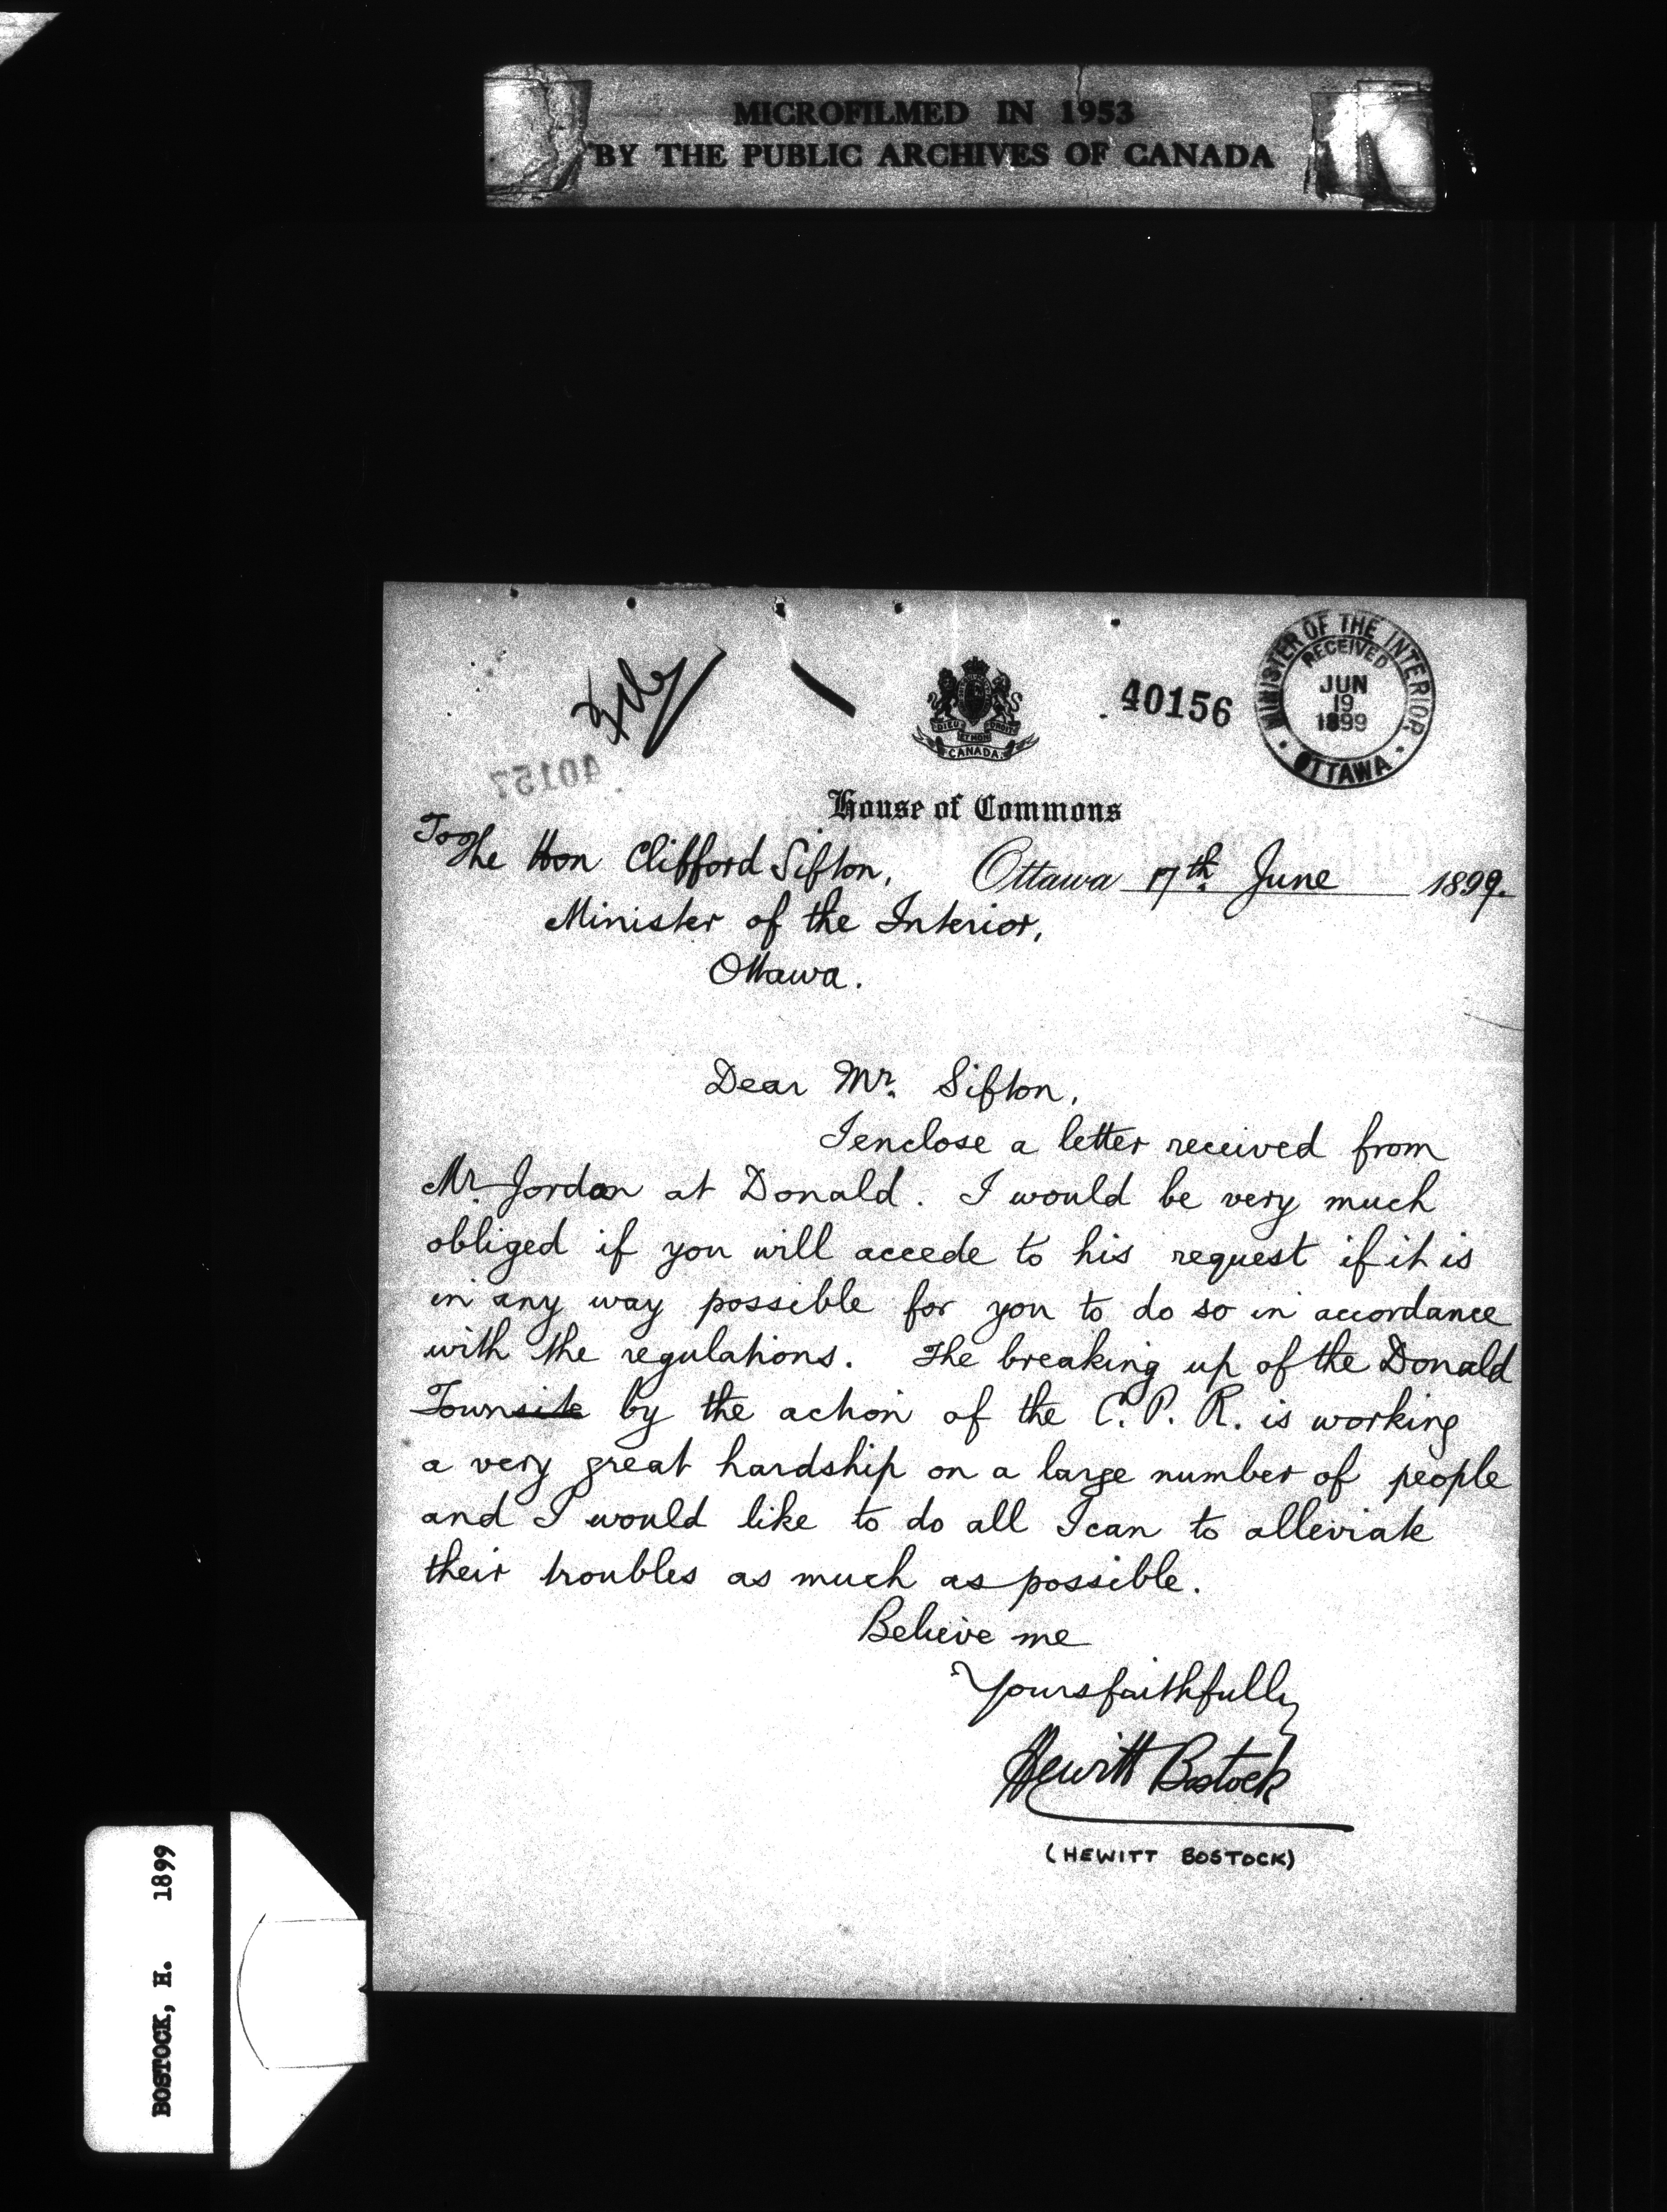 MICROFILMED IN 1953
BY THE PUBLIC ARCHIVES OF CANADA
40156
MINISTER OF THE INTERIOR
RECEIVED
JUN
19
1899
OTTAWA
DIEU ET MON DROIT
CANADA
40157
House of Commons
To The Hon Clifford Sifton,
Ottawa 17th. June 1899.
Minister of the Interior,
Ottawa.
Dear Mr. Sifton,
I enclose a letter received from
Mr. Jordan at Donald. I would be very much
obliged if you will accede to his request if it is
in any way possible for you to do so in accordance
with the regulations. The breaking up of the Donald
Townsite by the action of the C. P. R. is working
a very great hardship on a large number of people
and I would like to do all I can to alleviate
their troubles as much as possible.
Believe me
Yours faithfully
Hewitt Bostock
(HEWITT BOSTOCK)
BOSTOCK, H. 1899